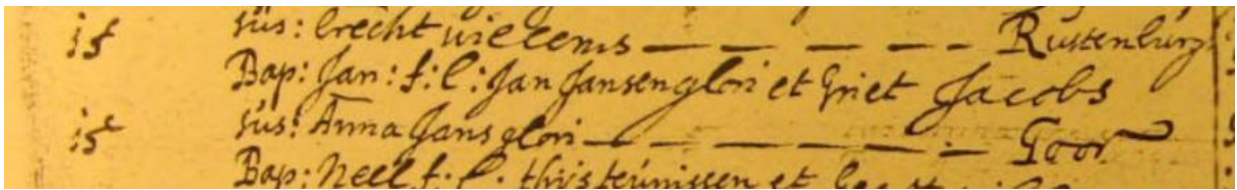 15 sus: brecht willems — — — — — Rustenburg
Bap: Jan: f: l: Jan Jansen glori et Griet Jacobs
15 sus: Anna Jans glori — — — — — — Goor
Bap: Neel f. l. thijs teunissen et